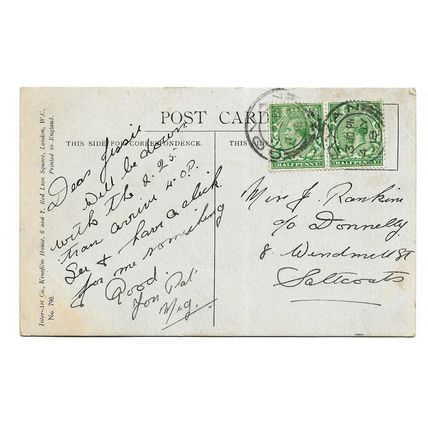 POST CARD
THIS SIDE FOR CORRESPONDENCE.
THIS
HALFPENNY
HALFPENNY
Dear Jessie
Will be down
with the 2.25.
train arrive 4.0P.
See & have a
for me something
Good.
Your Pal
Meg.
Miss J. Rankin
c/o Donnelly
8 Windmill St
Saltcoats
Inter-Art Co., Kingston House, 6 and 7, Red Lion Square, London, W.C.
No. 790.
Printed in England.